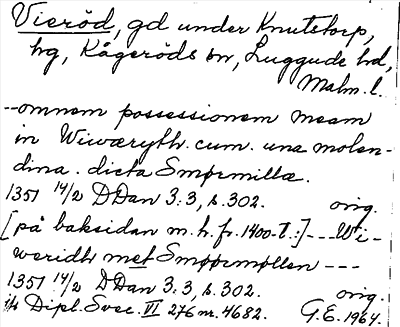 Vieröd, gd under Knutstorp,
hg, Kågeröds sn, Luggude hd,
Malm. l.
--omnem possessionem meam
in Wiwæryth. cum. una molen-
dina. dicta Smørmillæ.
1351 14/2 DDan 3:3, s. 302. orig.
[på baksidan m. h. fr. 1400-t.:]---Wi-
weridh met Smøørmøllen ---
1351 14/2 DDan 3:3, s. 302. orig.
Dipl. Svec. VI 276 nr. 4682. G.E. 1964.